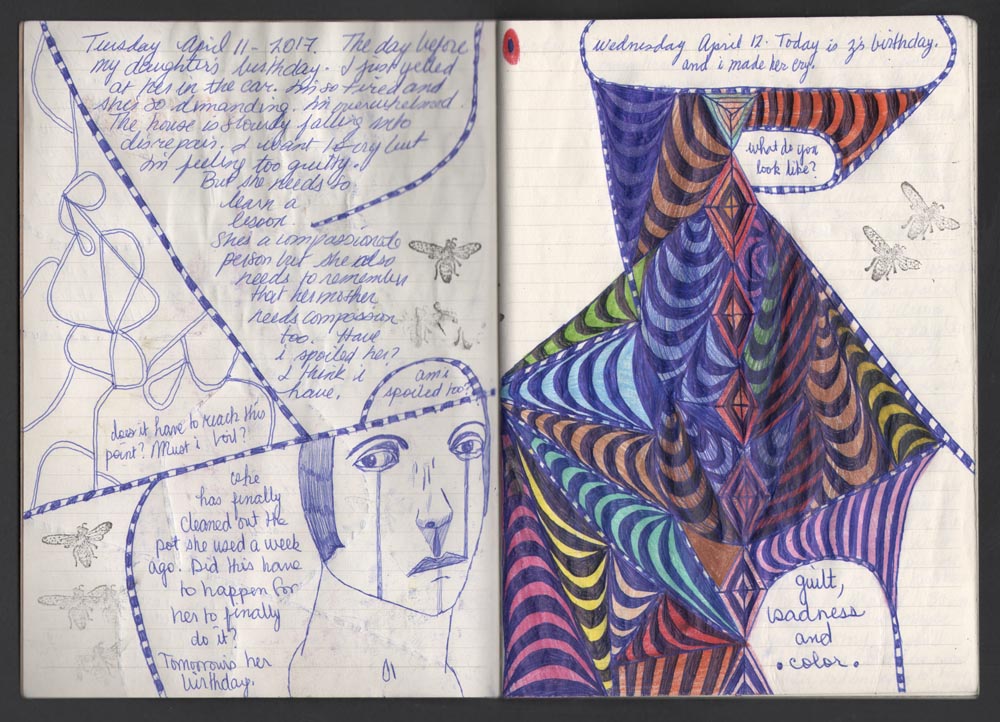 Tuesday April 11 - 2017. The day before
my daughter's birthday. I just yelled
at her in the car. I'm so tired and
she's so demanding. I'm overwhelmed.
The house is slowly falling into
disrepair. I want to cry but
I'm feeling too guilty.
But she needs to
learn a
lesson.
She's a compassionate
person but she also
needs to remember
that her mother
needs compassion
too. Have
i spoiled her?
I think i
have.
am i
spoiled too?
does it have to reach this
point? Must i boil?
she
has finally
cleaned out the
pot she used a week
ago. Did this have
to happen for
her to finally
do it?
Tomorrow's her
birthday.
Wednesday April 12. Today is z's birthday.
and i made her cry.
what do you
look like?
guilt,
sadness
and
• color •